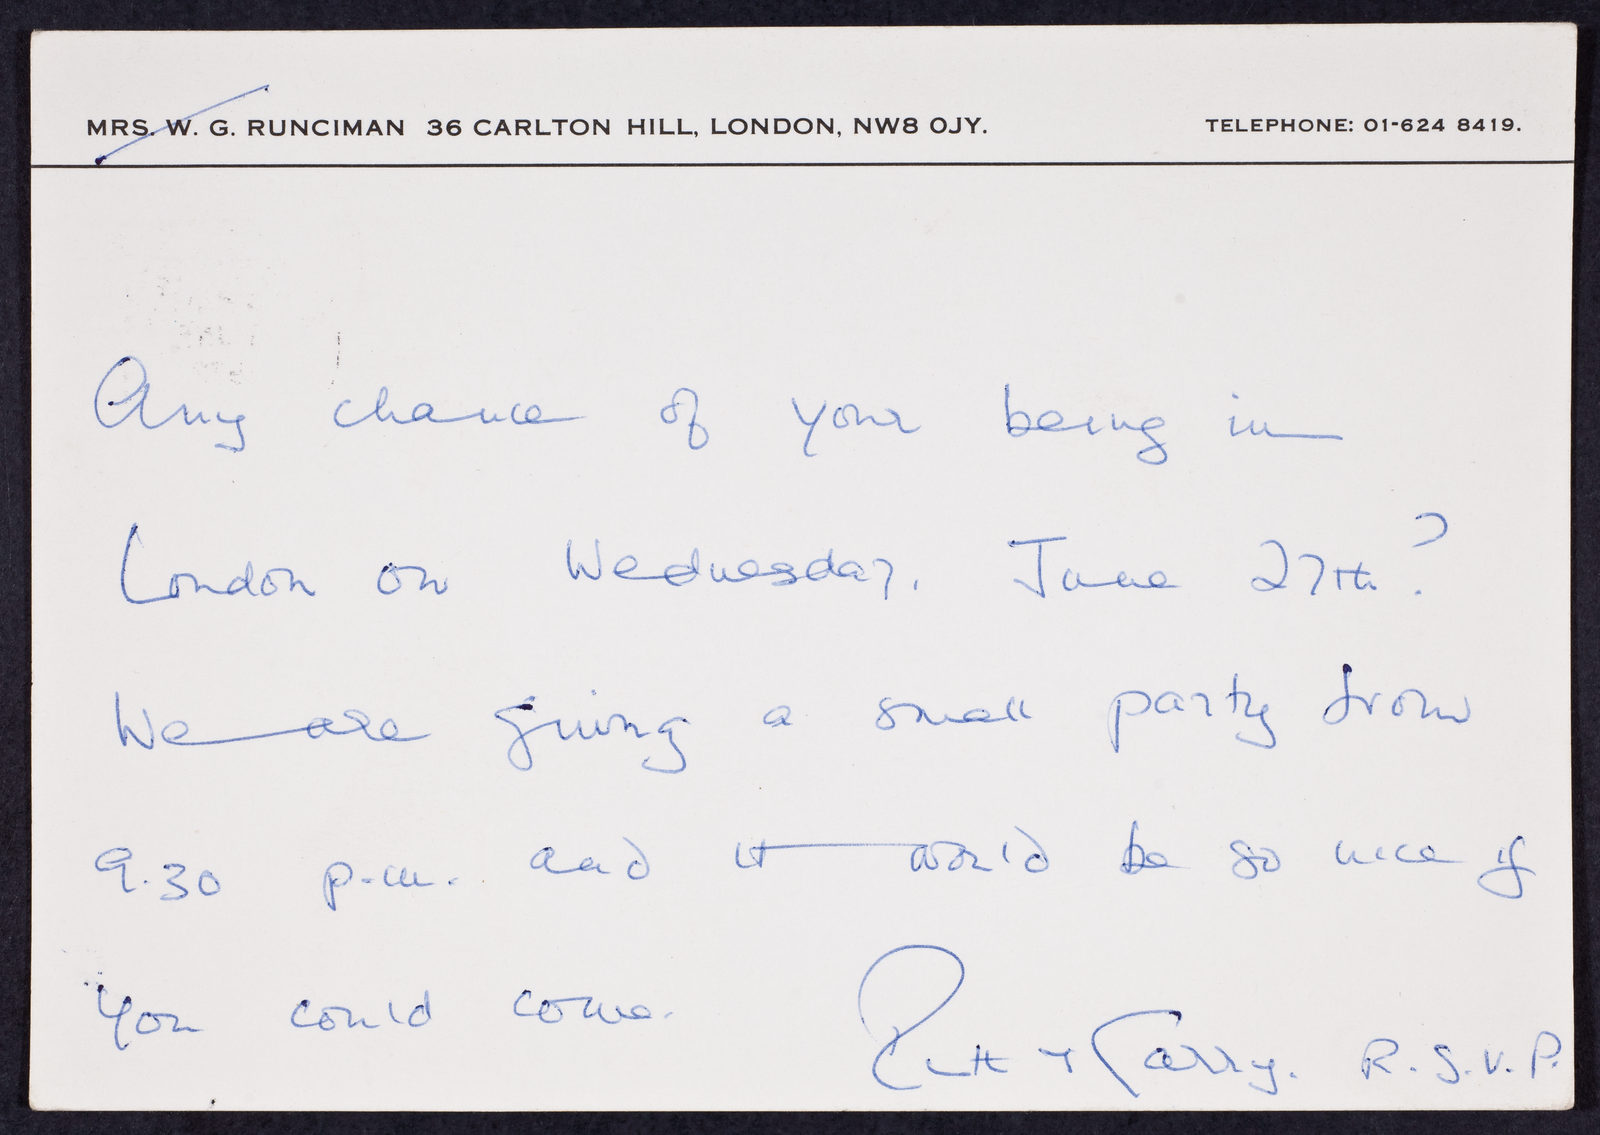 MRS. W. G. RUNCIMAN 36 CARLTON HILL, LONDON, NW8 0JY. TELEPHONE: 01-624 8419.
Any chance of your being in
London on Wednesday, June 27th?
We are giving a small party from
9.30 p.m. and it would be so nice if
you could come.
Ruth + Garry. R.S.V.P.